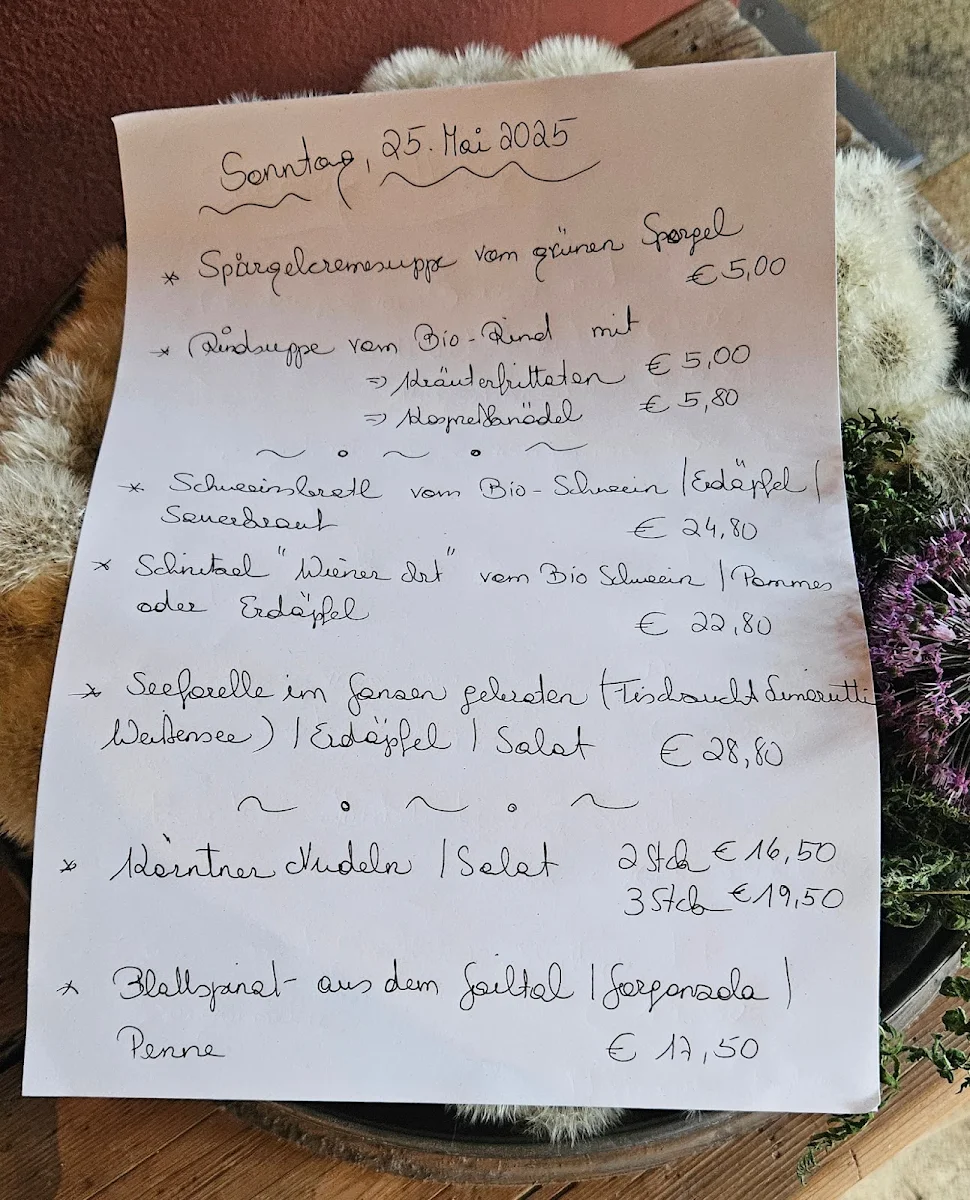 Sonntag, 25. Mai 2025
* Spargelcremesuppe vom grünen Spargel
€ 5,00
* Rindsuppe vom Bio-Rind mit
=> Kräuterfrittaten € 5,00
=> Kaspreßknödel € 5,80
~ o ~ o ~
* Schweinsbratl vom Bio-Schwein | Erdäpfel |
Sauerkraut € 24,80
* Schnitzel "Wiener Art" vom Bio Schwein | Pommes
oder Erdäpfel € 22,80
* Seeforelle im Ganzen gebraten (Fischzucht
Weißensee) | Erdäpfel | Salat € 28,80
~ o ~ o ~
* Kärntner Nudeln | Salat 2 Stck € 16,50
3 Stck € 19,50
* Blattspinat aus dem Gailtal | Gorgonzola |
Penne € 17,50